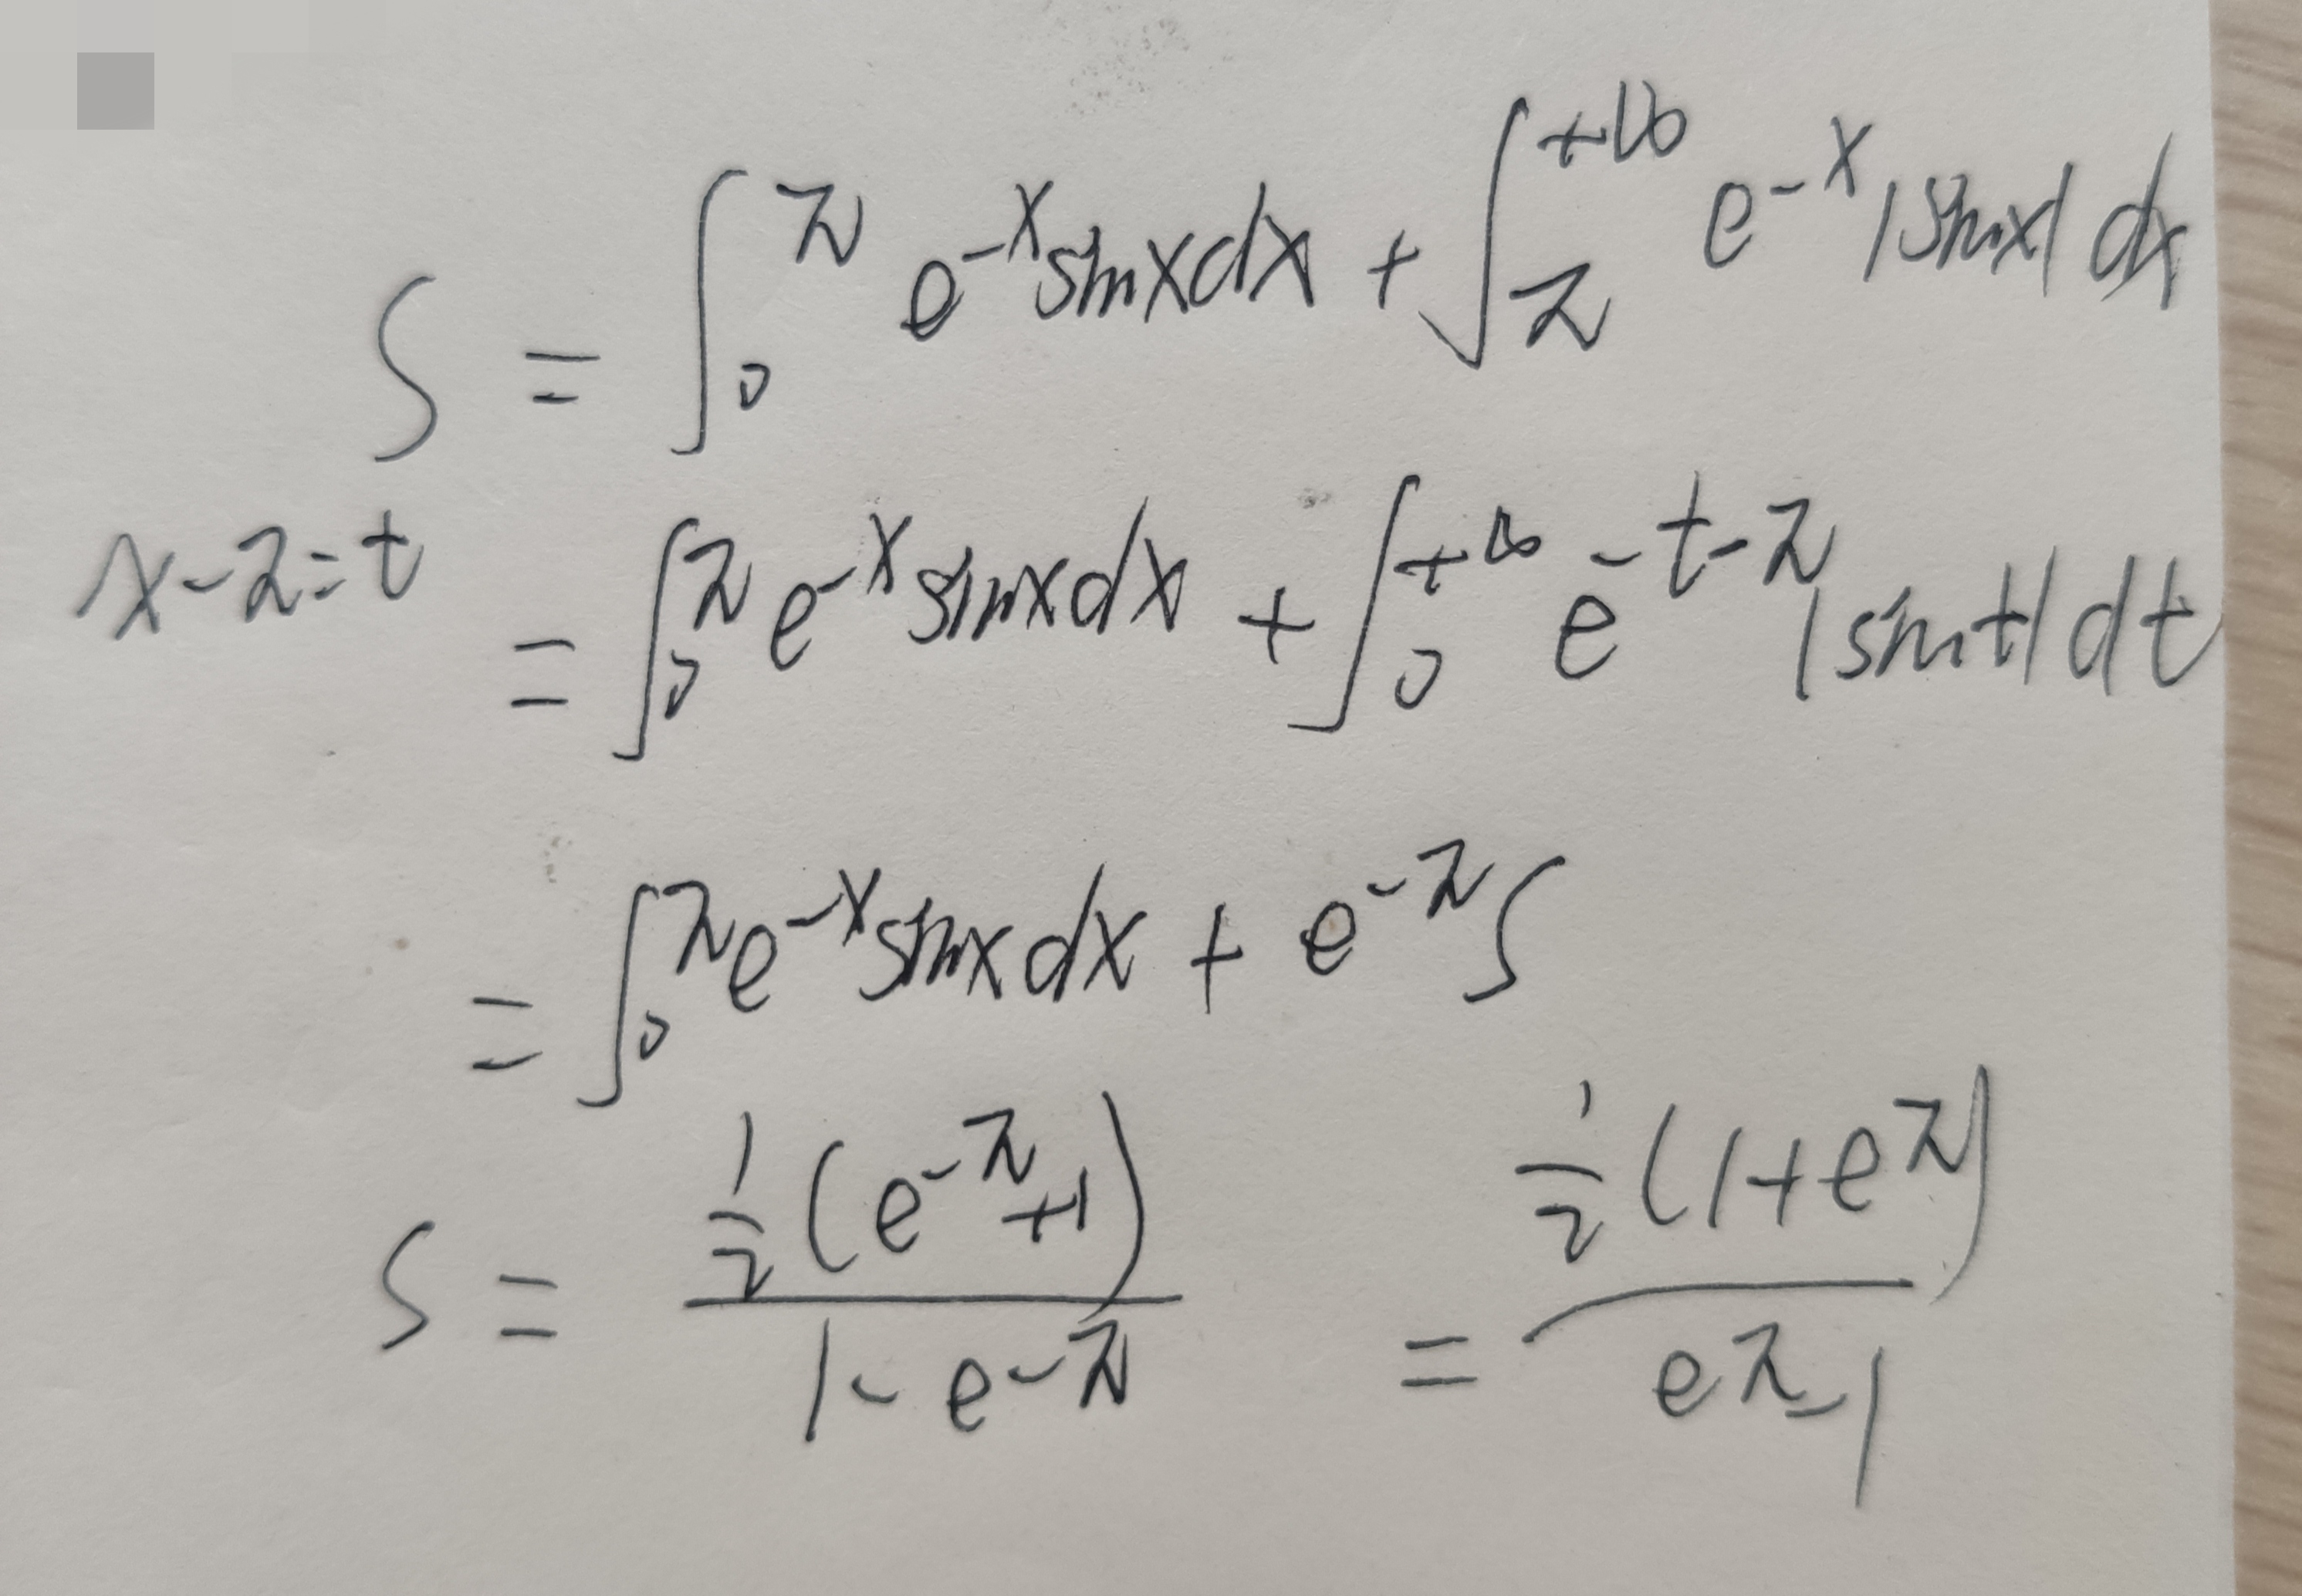 S = ∫₀^π e^{-x} sinx dx + ∫_π^{+∞} e^{-x} |sinx| dx
x-π=t
= ∫₀^π e^{-x} sinx dx + ∫₀^{+∞} e^{-t-π} |sint| dt
= ∫₀^π e^{-x} sinx dx + e^{-π} S
S = \frac{\frac{1}{2}(e^{-π}+1)}{1-e^{-π}} = \frac{\frac{1}{2}(1+e^{π})}{e^{π}-1}